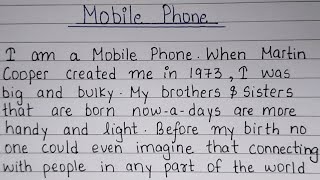 Mobile Phone
I am a Mobile Phone. When Martin
Cooper created me in 1973, I was
big and bulky. My brothers & Sisters
that are born now-a-days are more
handy and light. Before my birth no
one could even imagine that connecting
with people in any part of the world